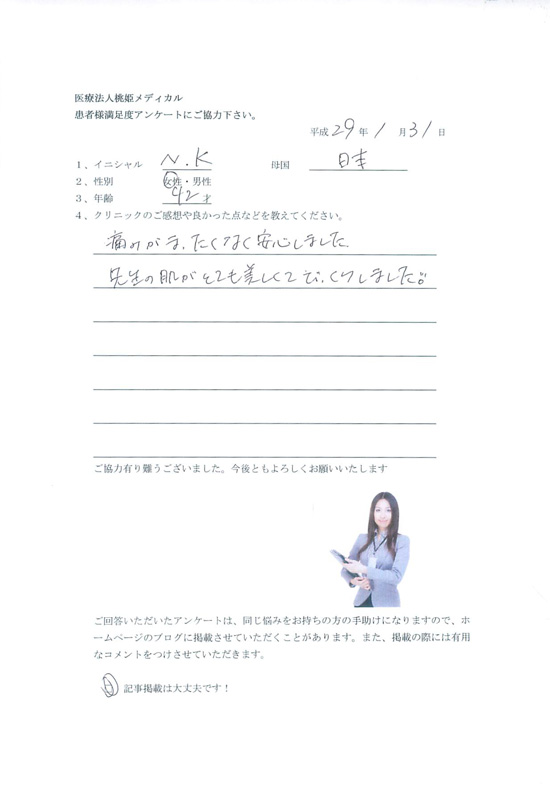 医療法人桃姫メディカル
患者様満足度アンケートにご協力下さい。
平成 29 年 1 月 31 日
1、イニシャル N.K 母国 日本
2、性別 女性・男性
3、年齢 42 才
4、クリニックのご感想や良かった点などを教えてください。
痛みがまったくなく安心しました。
先生の肌がとても美しくてびっくりしました。
ご協力有り難うございました。今後ともよろしくお願いいたします
ご回答いただいたアンケートは、同じ悩みをお持ちの方の手助けになりますので、ホ
ームページのブログに掲載させていただくことがあります。また、掲載の際には有用
なコメントをつけさせていただきます。
記事掲載は大丈夫です！